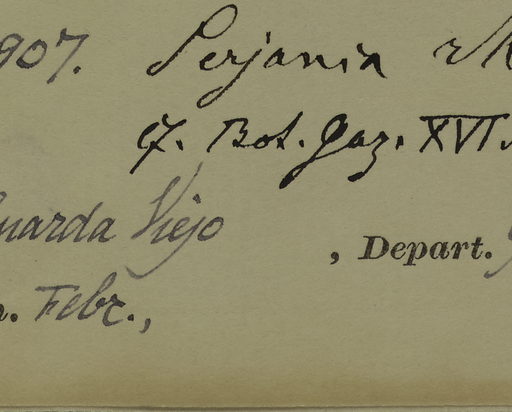 907. Serjania
Cf. Bot. Gaz. XVI.
uarda Viejo
, Depart.
Febr.,